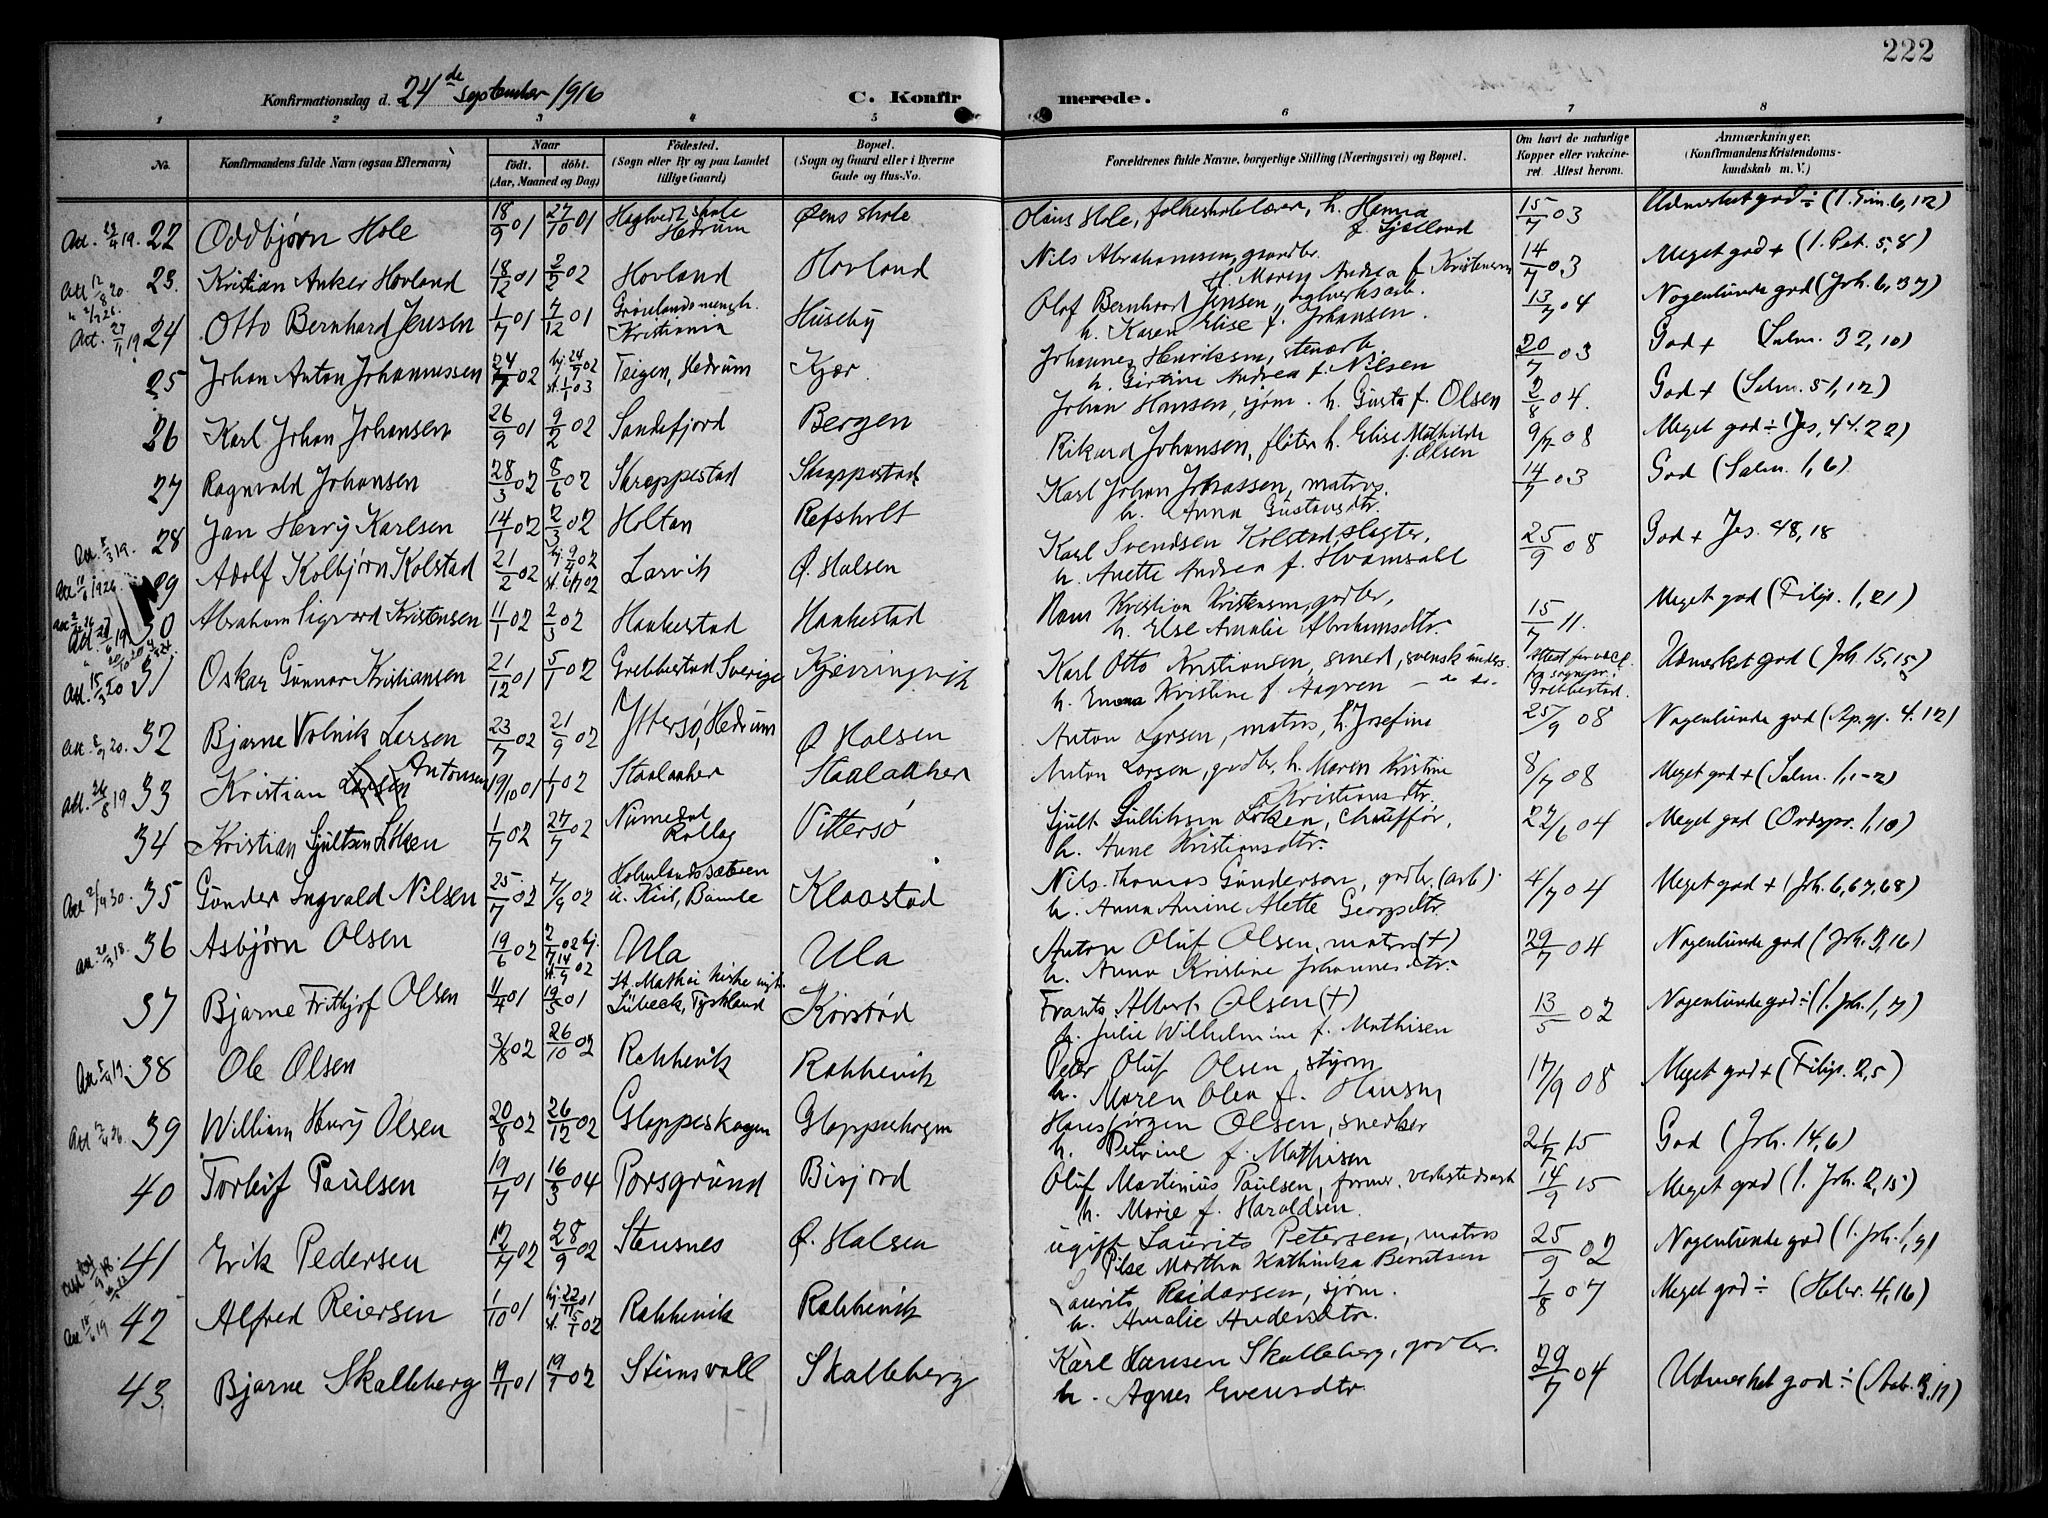 222
Konfirmationsdag d. 24de september 1916
C. Konfirmerede.
1 2 3 4 5 6 7 8
No. Konfirmandens fulde Navn (ogsaa Efternavn) Naar født. døbt. (Aar, Maaned og Dag) Fødested. (Sogn eller By og paa Landet tillige Gaard) Bopæl. (Sogn og Gaard eller i Byerne Gade og Hus-No. Forældrenes fulde Navne, borgerlige Stilling (Næringsvei) og Bopæl. Om havt de naturlige Kopper eller vakcineret. Attest herom. Anmærkninger. (Konfirmandens Kristendomskundskab m. V.)
22 Oddbjørn Hole 18/9 01 27/10 01 Hedrum Olaus Hole, folkeskolelærer, h. Hanna f. Gjelland 15/7 03 Udmerket god ÷ (1. Tim. 6, 12)
23. Kristian Anker Hovland 18/12 01 2/2 02 Hovland Hovland Nils Abrahamsen, gaardbr. h. Maren Andrea f. Kristensen 14/7 03 Meget god + (1. Pet. 5, 8)
24 Otto Bernhard Jensen 1/7 01 7/12 01 Grønlands menigh. Kristiania Huseby Olaf Bernhard Jensen, h. Karen Elise f. Johansen. 13/7 04 Nogenlunde god (Joh. 6, 37)
25 Johan Anton Johannessen 24/7 02 hj. 24/7 02 st. 1/1 03 Teigen, Hedrum Kjær Johannes Henriksen, stenarb. h. Girtine Andrea f. Nilsen 20/7 03 God + (Salm. 32, 10)
26 Karl Johan Johansen 26/9 01 9/2 02 Sandefjord Bergen Johan Hansen, sjøm. h. Gusta f. Olsen 2/8 04. God + (Salm. 51, 12)
27 Ragnvald Johansen 28/3 02 8/6 02 Skreppestad Skreppestad Rikard Johansen, fløter h. Elise Mathilde f. Olsen 9/7 08 Meget god ÷ (Jes. 44. 22)
28 Jan Henry Karlsen 14/1 02 2/3 02 Holtan Refsholt Karl Johan Johassen, matros, h. Anna Gustavsdtr. 14/7 03 God (Salm. 1, 6)
29 Adolf Kolbjørn Kolstad 21/2 02 Larvik Ø. Halsen Karl Svendsen Kolstad, slagter, h. Anette Andrea f. Hvamsahl 25/9 08 God + Jes. 48, 18
30 Abraham Sigvard Kristensen 11/1 02 2/3 02 Haakestad Haakestad Hans Kristian Kristensen, gadbr, h. Else Amalie Abrahamsdtr. 15/7 11. Meget god (Filip. 1, 21)
31 Oskar Gunnar Kristiansen 21/12 01 5/1 02 Grebbestad Sverige Kjerringvik Karl Otto Kristiansen, smed, svensk unders. h. Emma Kristine f. Aagren – do do. Attest for vacc. fra sognepr. i Grebbestad. Udmerket god (Joh. 15, 15)
32 Bjarne Volnik Larsen 23/7 02 21/9 02 Yttersø, Hedrum Ø Halsen Anton Larsen, matros, h. Josefine 25/9 08 Nogenlunde god (Ap. gj. 4. 12)
33 Kristian Antonsen 19/10 01 1/1 02 Staalaaker Staalaaker Anton Larsen, gadbr, h. Maren Kristine Kristiansdtr. 8/7 08 Meget god + (Salm. 1, 1-2)
34 Kristian Sjultsen Løken 1/7 02 27/7 02 Numedal Rollag Vittersø Sjult Gulliksen Løken, chauffør, h. Anne Kristiansdtr. 22/6 04 Meget god (Ordspr. 1, 10)
35 Gunder Ingvald Nilsen 25/7 02 7/9 02 Bamle Klaastad Nils Thomas Gundersen, gadbr, (arb). h. Anna Amine Alette Georgsdtr. 4/7 04 Meget god + (Joh. 6, 67, 68)
36 Asbjørn Olsen 19/6 02 2/7 02 hj. st. 14/9 02 Ula Ula Anton Oluf Olsen, matros (+) h. Anna Kristine Johannesdtr. 29/7 04 Nogenlunde god (Joh. 3, 16)
37 Bjarne Frithjof Olsen 11/4 01 19/5 01 St. Mathæi kirke Lübeck, Tyskland Korstød Frants Albert Olsen (+) h. Julie Wilhelmine f. Mathisen 13/5 02 Nogenlunde god ÷ (1. Joh. 1, 7)
38 Ole Olsen 3/8 02 26/10 02 Rakkevik Rakkevik Peter Oluf Olsen, styrm h. Maren Olea f. Hansen 17/9 08 Meget god + (Filip. 2, 5)
39 William Henry Olsen 20/8 02 26/12 02 Gloppeskogen Gloppeskogen Hans Jørgen Olsen, snedker h. Petrine f. Mathisen 21/7 15 God (Joh. 14, 6)
40 Torleif Paulsen 19/7 01 16/3 04 Porsgrund Bisjord Oluf Martinius Paulsen, former, verkstedsarb h. Marie f. Haraldsen. 14/9 15 Meget god (1. Joh. 2, 15)
41 Erik Pedersen 28/9 02 Stensnes Ø. Halsen ugift Laurits Petersen, matros Pike Martha Kathinka Berntsen 25/9 02 Nogenlunde god (1. Joh. 1, 9)
42 Alfred Reiersen 1/10 01 hj. 22/11 01 st. 5/1 02 Rakkevik Rakkevik Laurits Reidarsen, sjøm. h. Amalie Andersdtr. 1/8 07 Meget god ÷ (Hebr. 4, 16)
43 Bjarne Skalleberg 19/11 01 19/1 02 Steinsvoll Skalleberg Karl Hansen Skalleberg, gadbr. h. Agnes Evensdtr. 29/7 04 Udmerket god ÷ (Aab. 3. 11)